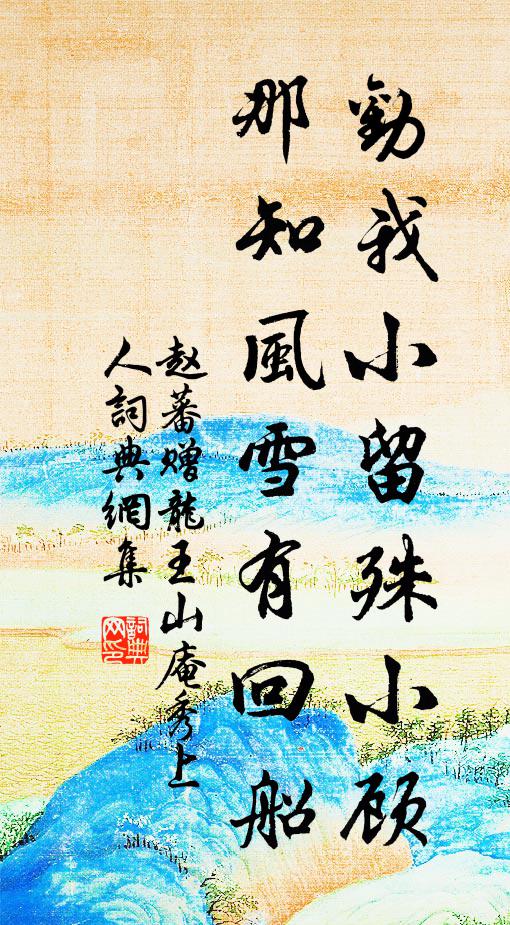 勸我小留殊小顾
那知風雪有回船
赵蕃赠龍王山庵秀上
人詞典網集
詞典
网印